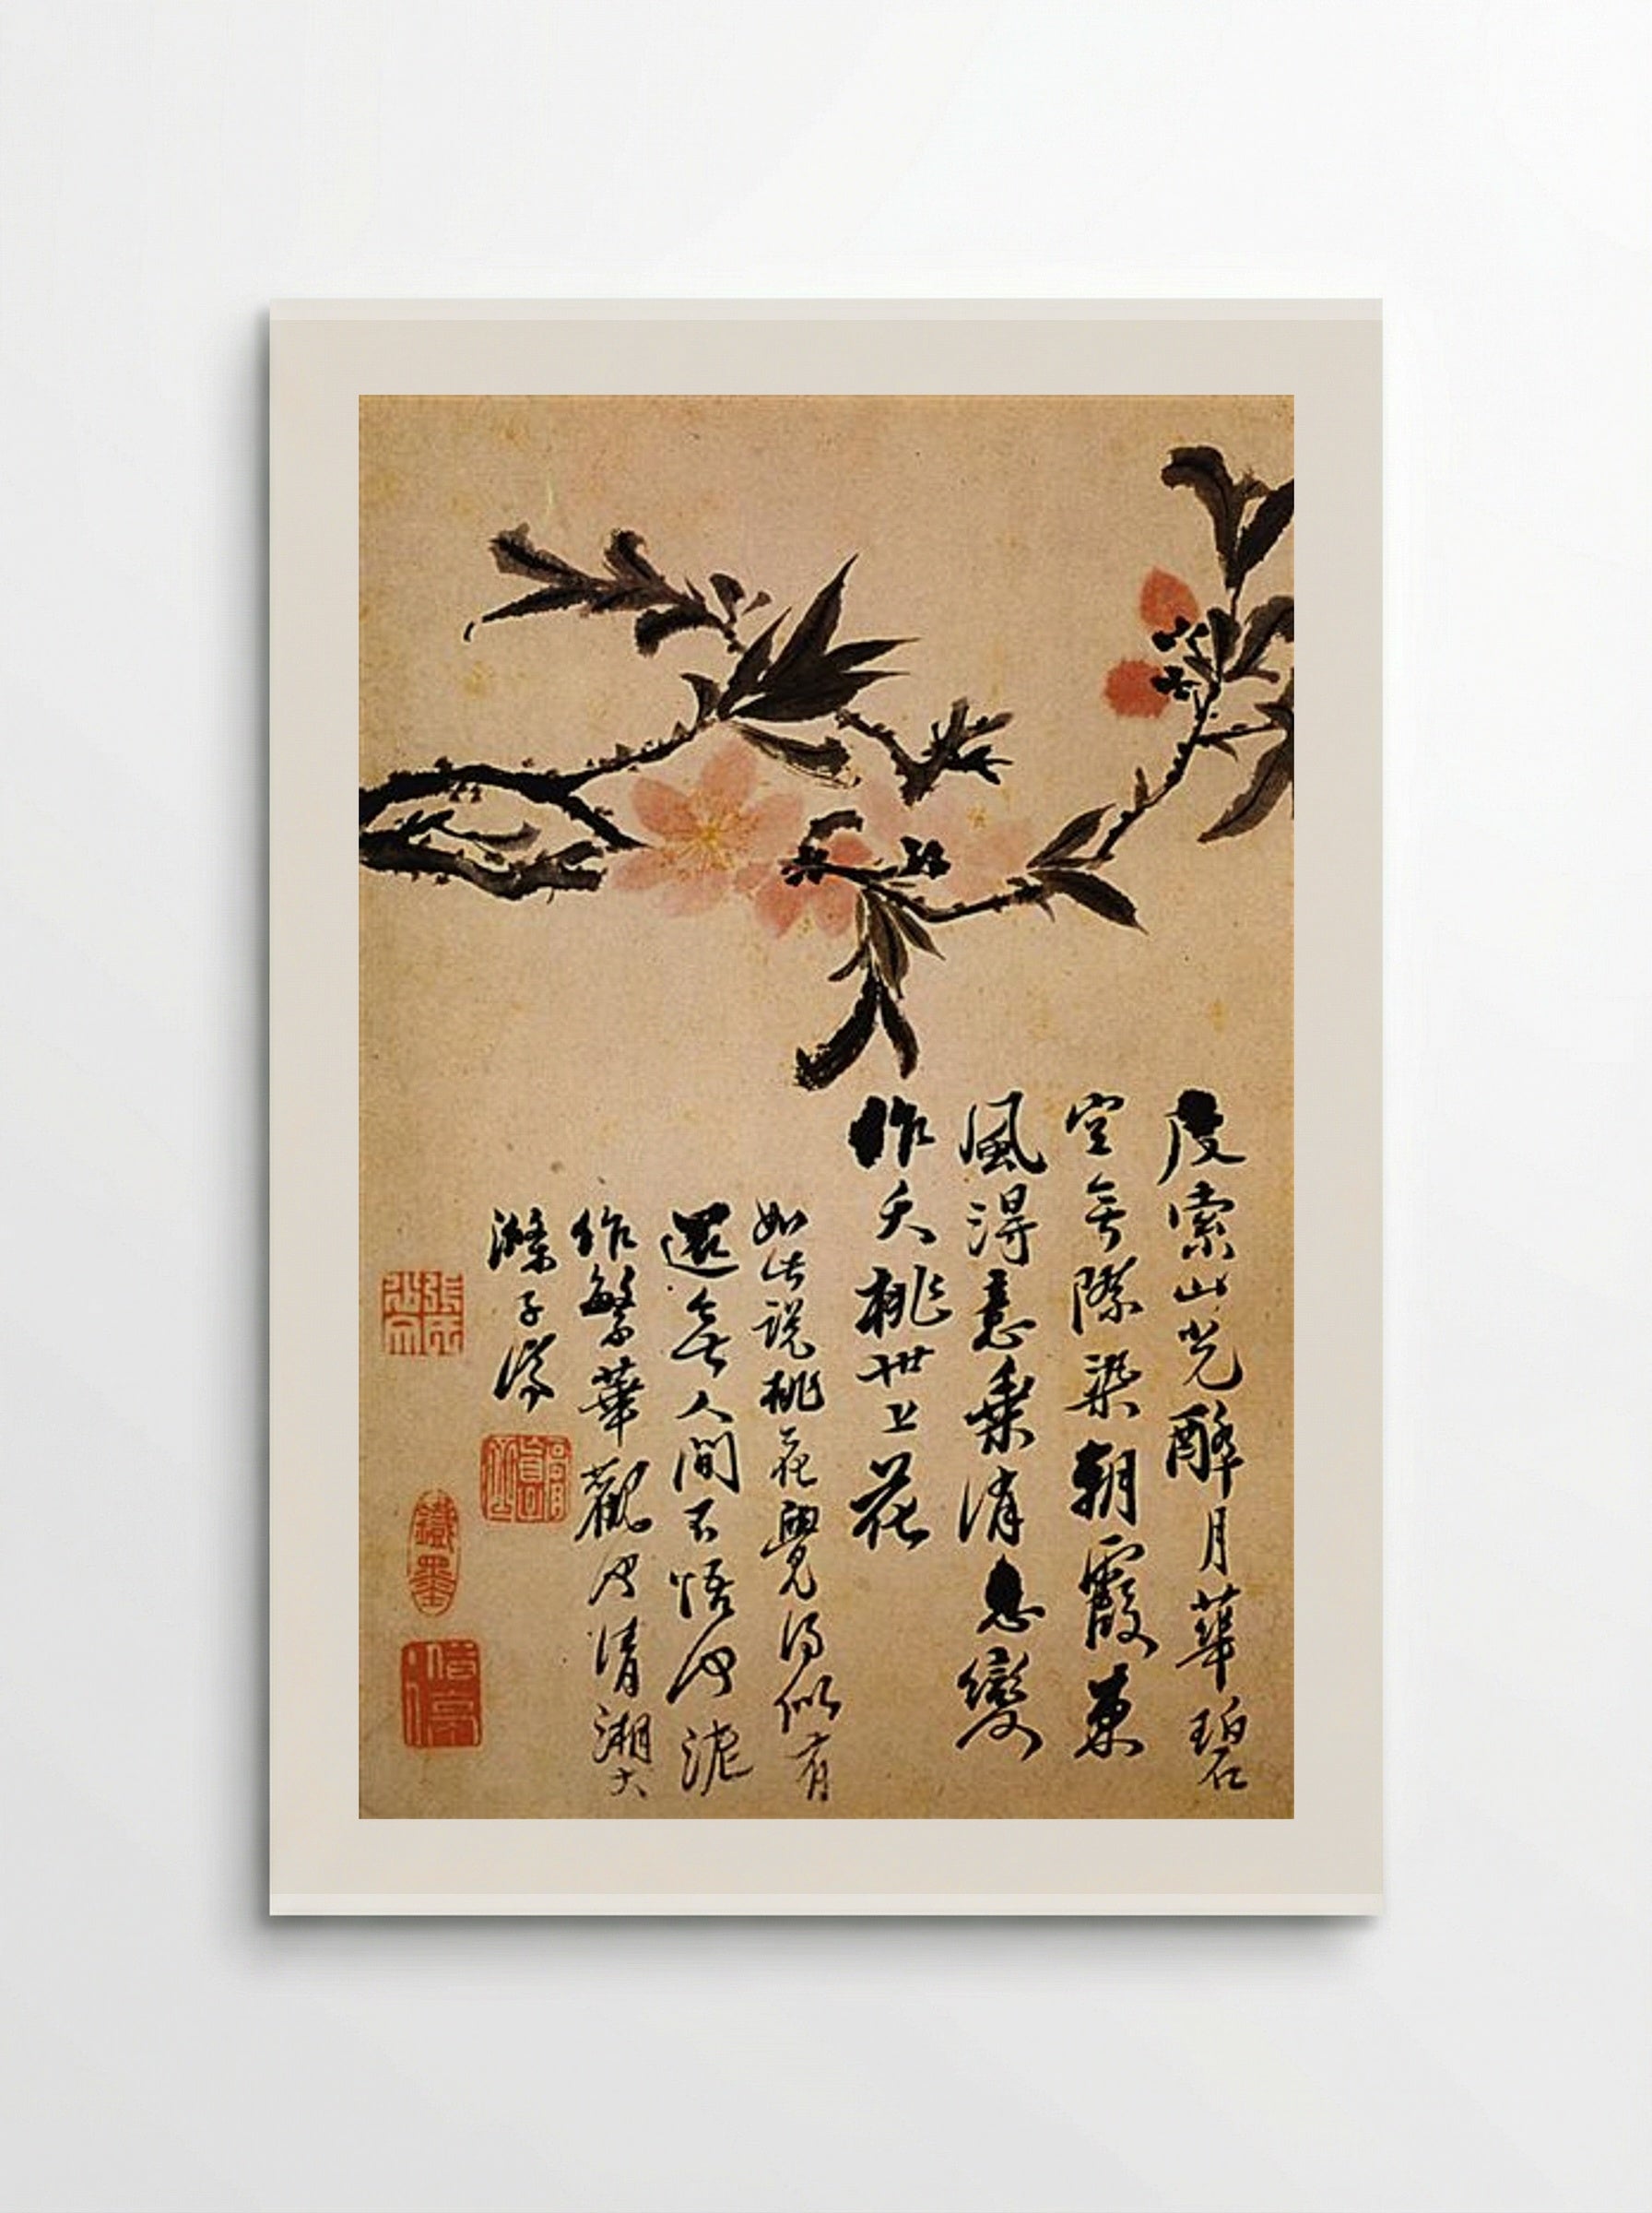 度索山光醉月華碧
空無際染朝霞東
風得意乘消息變
作夭桃世上花
如此說桃花覺得似有
還無人間不悟何泥
作繁華觀清湘大
滌子濟
鐵墨